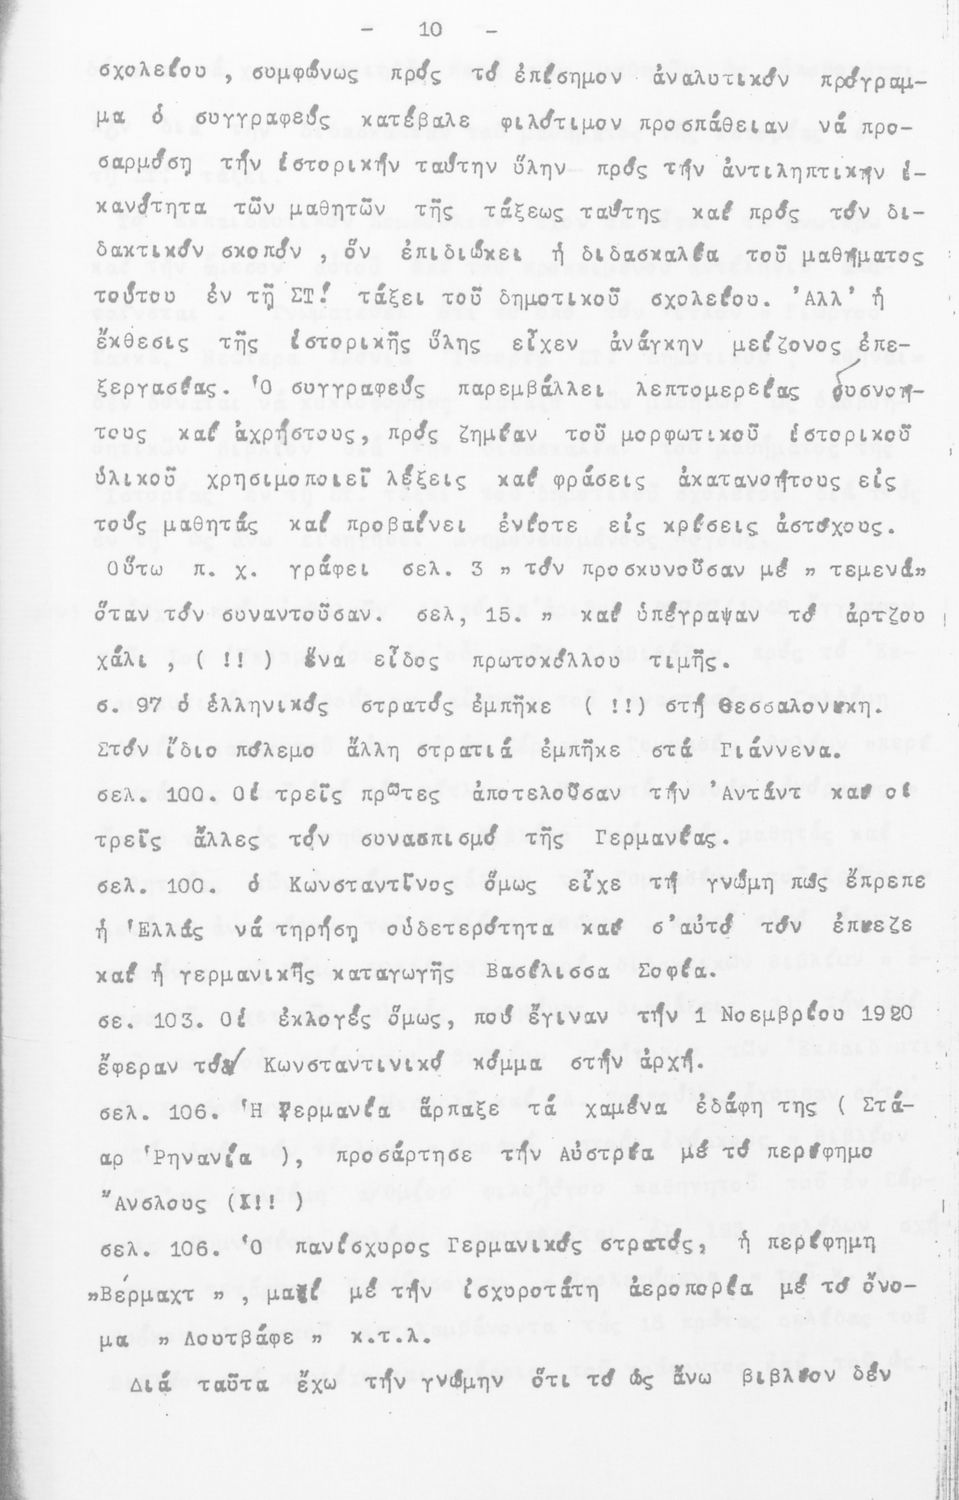 - 10 -
σχολείου , συμφώνως πρός τό ἐπίσημον ἀναλυτικόν πρόγραμ-
μα ὁ συγγραφεύς κατέβαλε φιλότιμον προσπάθειαν νά προ-
σαρμόσῃ τήν ἱστορικήν ταύτην ὕλην πρός τήν ἀντιληπτικήν ἱ-
κανότητα τῶν μαθητῶν τῆς τάξεως ταύτης καί πρός τόν δι-
δακτικόν σκοπόν , ὅν ἐπιδιώκει ἡ διδασκαλία τοῦ μαθήματος
τούτου ἐν τῇ ΣΤ! τάξει τοῦ δημοτικοῦ σχολείου. 'Αλλ' ἡ
ἔκθεσις τῆς ἱστορικῆς ὕλης εἶχεν ἀνάγκην μείζονος ἐπε-
ξεργασίας. Ὁ συγγραφεύς παρεμβάλλει λεπτομερείας δυσνοή-
τους καί ἀχρήστους, πρός ζημίαν τοῦ μορφωτικοῦ ἱστορικοῦ
ὑλικοῦ χρησιμοποιεῖ λέξεις καί φράσεις ἀκατανοήτους εἰς
τούς μαθητάς καί προβαίνει ἐνίοτε εἰς κρίσεις ἀστόχους.
Οὕτω π. χ. γράφει σελ. 3 " τόν προσκυνοῦσαν μέ " τεμενά"
ὅταν τόν συναντοῦσαν. σελ, 15. " καί ὑπέγραψαν τό ἀρτζου
χάλι , ( !! ) ἕνα εἶδος πρωτοκόλλου τιμῆς.
σ. 97 ὁ ἑλληνικός στρατός ἐμπῆκε ( !!) στή Θεσσαλονίκη.
Στόν ἴδιο πόλεμο ἄλλη στρατιά ἐμπῆκε στά Γιάννενα.
σελ. 100. Οἱ τρεῖς πρῶτες ἀποτελοῦσαν τήν 'Αντάντ καί οἱ
τρεῖς ἄλλες τόν συνασπισμό τῆς Γερμανίας.
σελ. 100. ὁ Κωνσταντῖνος ὅμως εἶχε τή γνώμη πώς ἔπρεπε
ἡ Ἑλλάς νά τηρήσῃ οὐδετερότητα καί σ'αὐτό τόν ἐπίεζε
καί ἡ γερμανικῆς καταγωγῆς Βασίλισσα Σοφία.
σε. 103. Οἱ ἐκλογές ὅμως, πού ἔγιναν τήν 1 Νοεμβρίου 1920
ἔφεραν τό Κωνσταντινικό κόμμα στήν ἀρχή.
σελ. 106. Ἡ Γερμανία ἅρπαξε τά χαμένα ἐδάφη της ( Στά-
αρ Ῥηνανία ), προσάρτησε τήν Αὐστρία μέ τό περίφημο
"Ανσλους (!!! )
σελ. 106. Ὁ πανίσχυρος Γερμανικός στρατός, ἡ περίφημη
"Βέρμαχτ " , μαζί μέ τήν ἰσχυροτάτη ἀεροπορία μέ τό ὄνο-
μα " Λουτβάφε " κ.τ.λ.
Διά ταῦτα ἔχω τήν γνώμην ὅτι τό ὡς ἄνω βιβλίον δέν